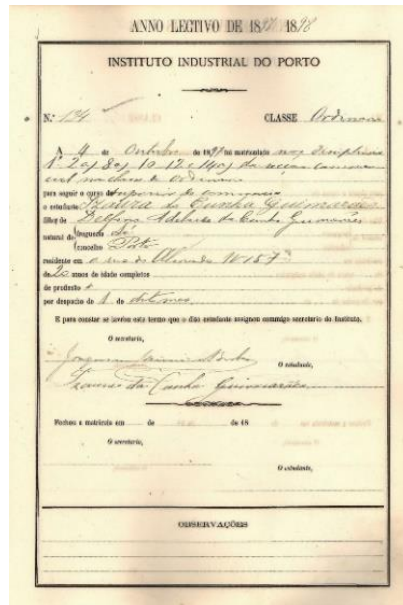 ANNO LECTIVO DE 1897 1898
INSTITUTO INDUSTRIAL DO PORTO
N.º 124 CLASSE Ordinario
A 4 de Outubro de 1897 foi matriculado nas disciplinas
1ª 2ª 8ª 10 12 e 14
na classe de ordinario
para seguir o curso de superior de commercio
o estudante da Cunha Guimarães
filho de Delfina Adelaide da Cunha Guimarães
natural da freguezia Sé
concelho Porto
residente em a rua do Almada Nº 157
de 20 annos de idade completos
de profissão
por despacho de 4 de dito mez
E para constar se lavrou este termo que o dito estudante assignou commigo secretario do Instituto.
O secretario,
O estudante,
da Cunha Guimarães
Fechou a matricula em de de 18
O secretario,
O estudante,
OBSERVAÇÕES